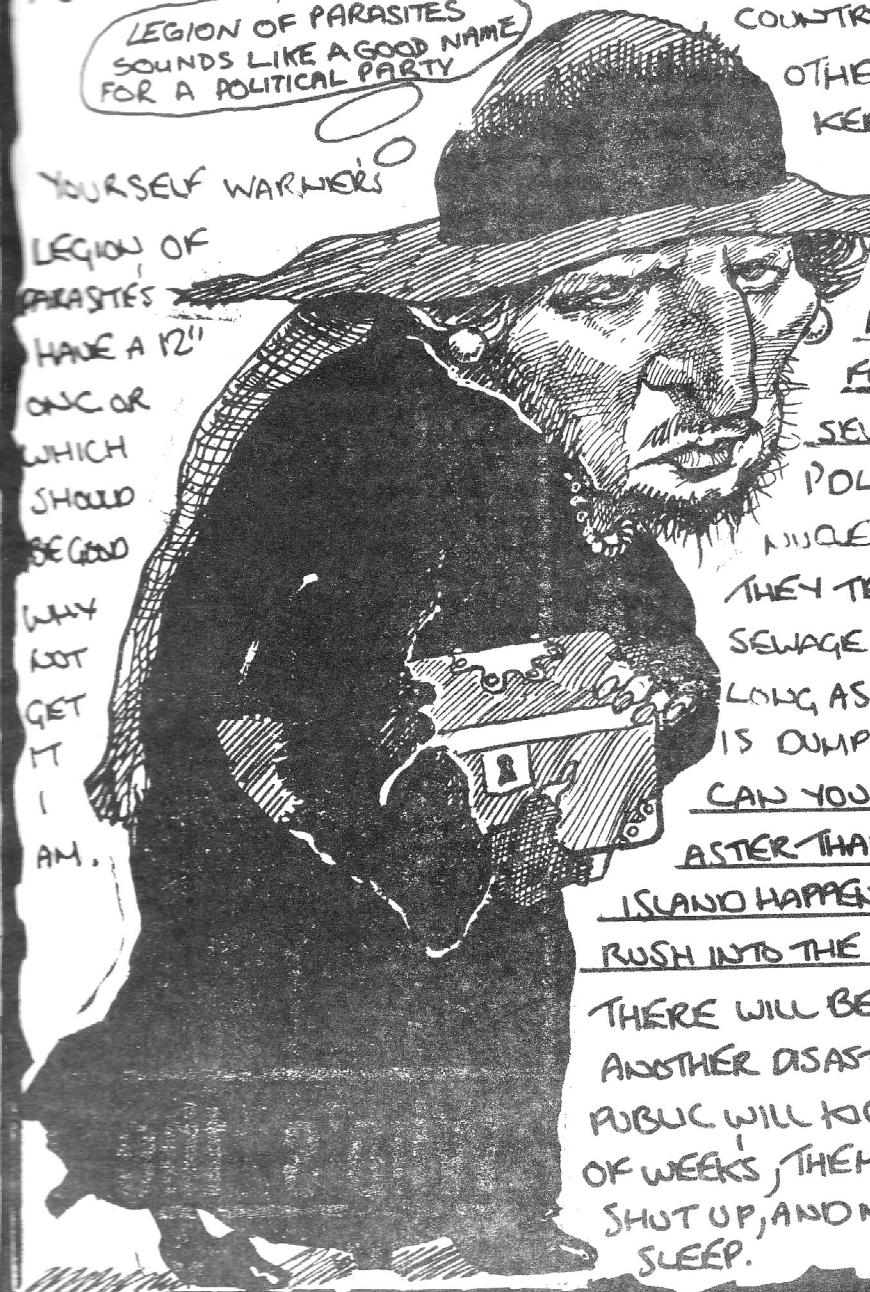 LEGION OF PARASITES
SOUNDS LIKE A GOOD NAME
FOR A POLITICAL PARTY
YOURSELF WARNERS
LEGION OF
PARASITES
HAVE A 12"
ONC OR
WHICH
SHOULD
BE GOOD
WHY
NOT
GET
IT
I
AM.
COUNTR
OTHE
SEW
POL
NUCLE
THEY
SEWAGE
LONG AS
IS DUMP
CAN YOU
ASTER THA
ISLAND HAPPEN
RUSH INTO THE
THERE WILL BE
ANOTHER DISAST
PUBLIC WILL KIC
OF WEEKS, THE
SHUT UP, AND
SLEEP.